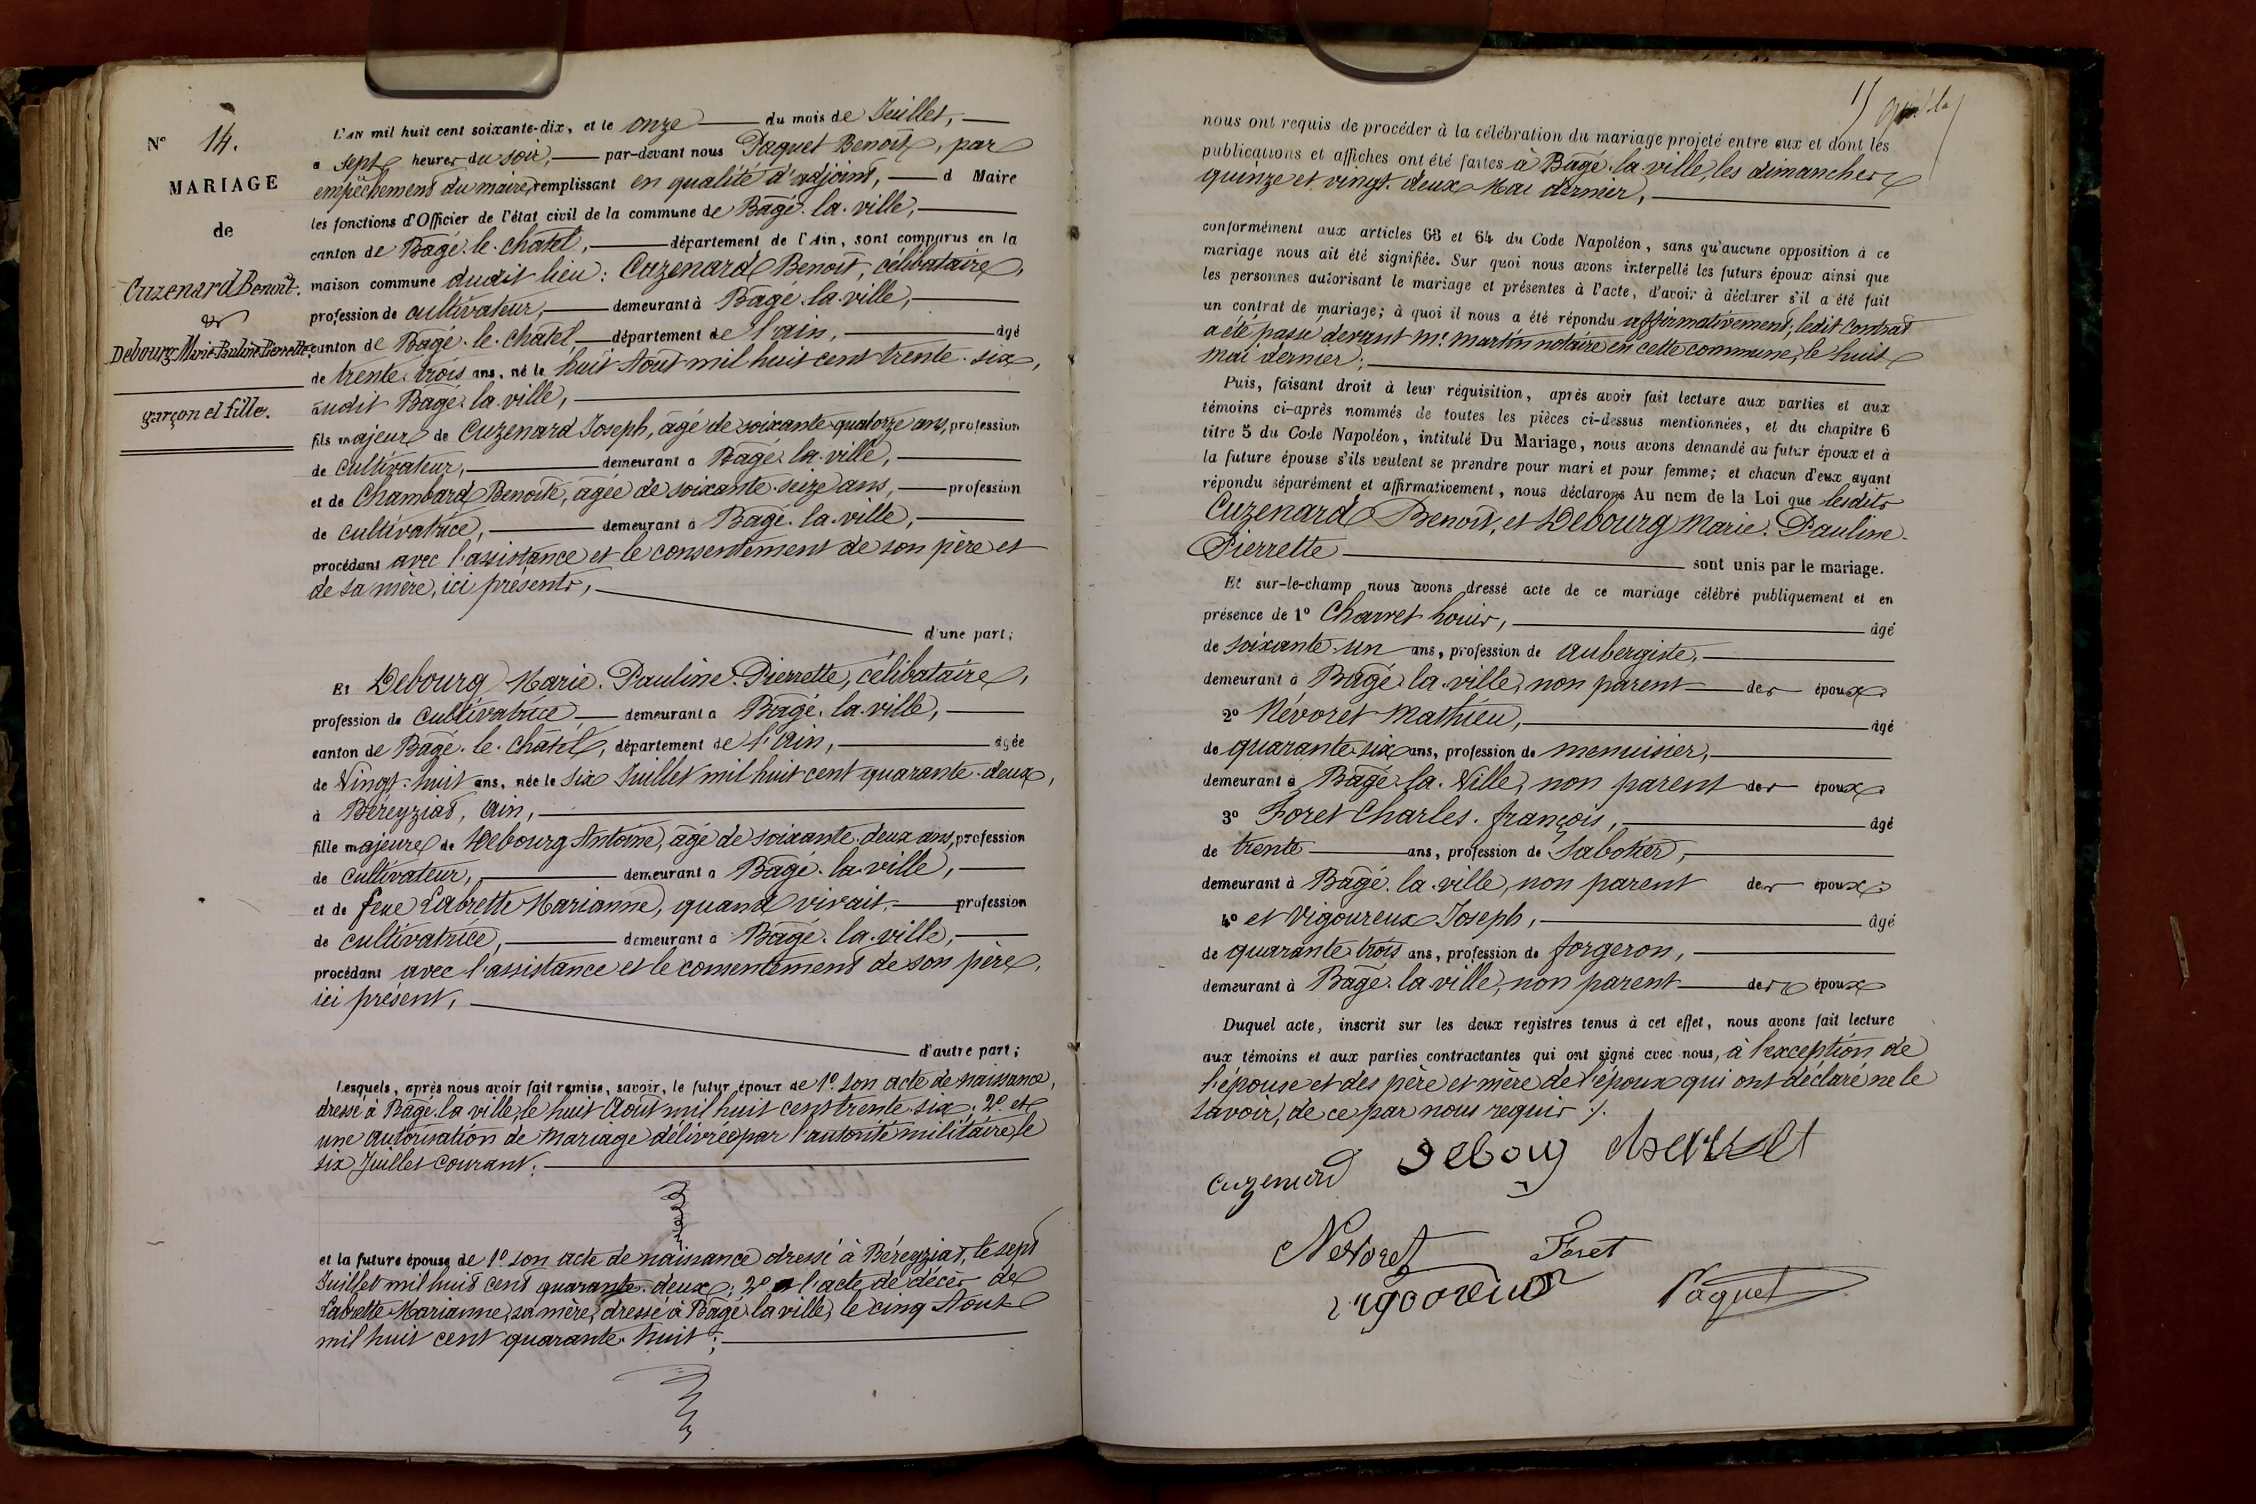 N° 14.
MARIAGE
de
Cuzenard Benoît.
et
Debourg Marie Pauline Pierrette
garçon et fille.
L'AN mil huit cent soixante-dix, et le onze du mois de Juillet,
a sept heures du soir, par-devant nous Paquet Benoît, par
empêchement du maire, remplissant en qualité d'adjoint, d Maire
les fonctions d'Officier de l'état civil de la commune de Bâgé-la-ville,
canton de Bâgé-le-châtel, département de l'Ain, sont comparus en la
maison commune dudit lieu : Cuzenard Benoît, célibataire,
profession de cultivateur, demeurant à Bâgé-la-ville,
canton de Bâgé-le-châtel département de l'ain, âgé
de trente-trois ans, né le huit Aout mil huit cent trente-six,
audit Bâgé-la-ville,
fils majeur de Cuzenard Joseph, âgé de soixante-quatorze ans, profession
de cultivateur, demeurant a Bâgé-la-ville,
et de Chambard Benoîte, âgée de soixante-seize ans, profession
de cultivatrice, demeurant a Bâgé-la-ville,
procédant avec l'assistance et le consentement de son père et
de sa mère, ici présents,
d'une part ;
Et Debourg Marie-Pauline-Pierrette, célibataire,
profession de cultivatrice demeurant a Bâgé-la-ville,
canton de Bâgé-le-châtel, département de l'Ain, âgée
de Vingt-huit ans, née le six Juillet mil huit cent quarante-deux,
à Béreyziat, Ain,
fille majeure de Debourg Antoine, âgé de soixante-deux ans, profession
de cultivateur, demeurant a Bâgé-la-ville,
et de feue Labrette Marianne, quand vivait, profession
de cultivatrice, demeurant a Bâgé-la-ville,
procédant avec l'assistance et le consentement de son père,
ici présent,
d'autre part ;
Lesquels, après nous avoir fait remise, savoir, le futur époux de 1° son acte de naissance,
dressé à Bâgé-la ville, le huit Aout mil huit cent trente-six ; 2° et
une autorisation de mariage délivrée par l'autorité militaire, le
six Juillet courant ;
et la future épouse de 1° son acte de naissance dressé à Béreyziat, le sept
Juillet mil huit cent quarante-deux ; 2° l'acte de décès de
Labrette Marianne, sa mère, dressé à Bâgé-la ville, le cinq Aout
mil huit cent quarante-huit ;
15
nous ont requis de procéder à la célébration du mariage projeté entre eux et dont les
publications et affiches ont été faites à Bâgé-la-ville, les dimanches
quinze et vingt-deux Mai dernier,
conformément aux articles 63 et 64 du Code Napoléon, sans qu'aucune opposition à ce
mariage nous ait été signifiée. Sur quoi nous avons interpellé les futurs époux ainsi que
les personnes autorisant le mariage et présentes à l'acte, d'avoir à déclarer s'il a été fait
un contrat de mariage ; à quoi il nous a été répondu affirmativement, ledit Contrat
a été passé devant Me. Martin notaire en cette commune, le huit
mai dernier ;
Puis, faisant droit à leur réquisition, après avoir fait lecture aux parties et aux
témoins ci-après nommés de toutes les pièces ci-dessus mentionnées, et du chapitre 6
titre 5 du Code Napoléon, intitulé Du Mariage, nous avons demandé au futur époux et à
la future épouse s'ils veulent se prendre pour mari et pour femme ; et chacun d'eux ayant
répondu séparément et affirmativement, nous déclarons Au nom de la Loi que lesdits
Cuzenard Benoît, et Debourg Marie-Pauline-
Pierrette sont unis par le mariage.
Et sur-le-champ nous avons dressé acte de ce mariage célébré publiquement et en
présence de 1° Charvet Louis, âgé
de soixante-un ans, profession de aubergiste,
demeurant à Bâgé-la-ville, non parent des époux
2° Névoret Mathieu, âgé
de quarante-six ans, profession de menuisier,
demeurant à Bâgé-la-Ville, non parent des époux
3° Foret Charles-françois, âgé
de trente ans, profession de Sabotier,
demeurant à Bâgé-la-ville, non parent des époux
4° et Vigoureux Joseph, âgé
de quarante-trois ans, profession de forgeron,
demeurant à Bâgé-la-ville, non parent des époux
Duquel acte, inscrit sur les deux registres tenus à cet effet, nous avons fait lecture
aux témoins et aux parties contractantes qui ont signé avec nous, à l'exception de
l'épouse et des père et mère de l'époux qui ont déclaré ne le
savoir, de ce par nous requis ./.
Cuzenard Deboug Charvet
Nevoret Foret
Vigooreux Paquet